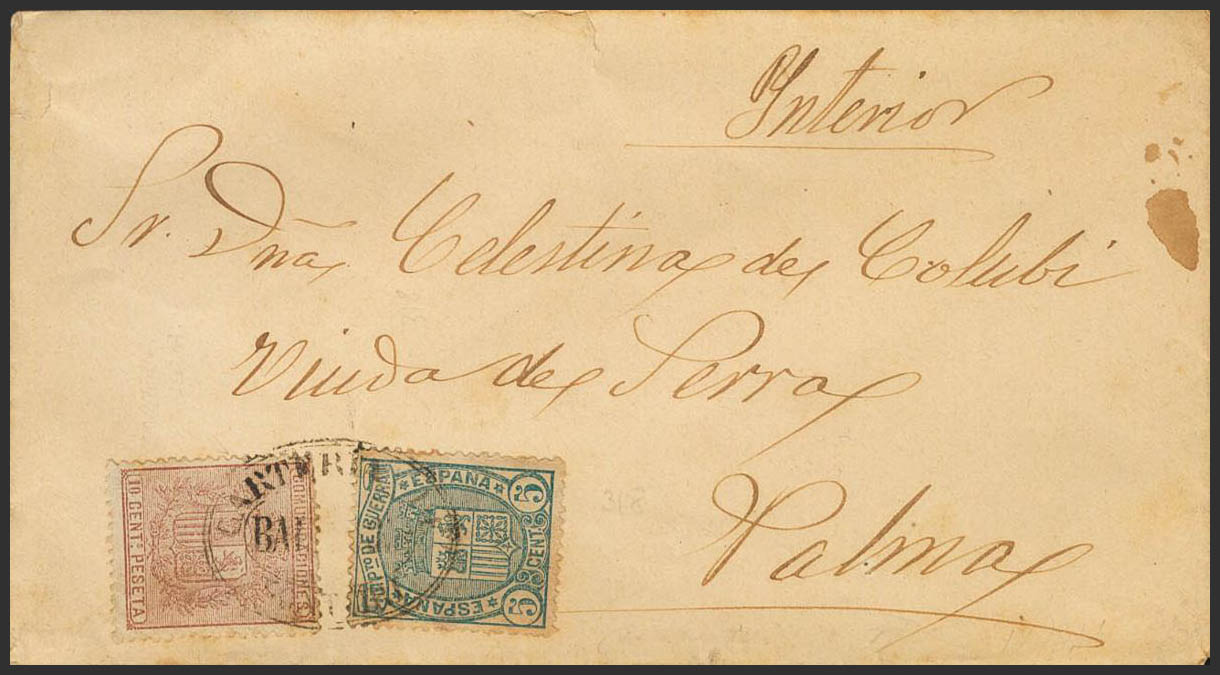 Interior
Sr. Dña Celestina de Colubi
Viuda de Serra
Palma
10 CENT. PESETA
COMUNICACIONES
CARTERÍA
BAL
IMPTO DE GUERRA
ESPAÑA
5 CENT. 5
ESPAÑA
318